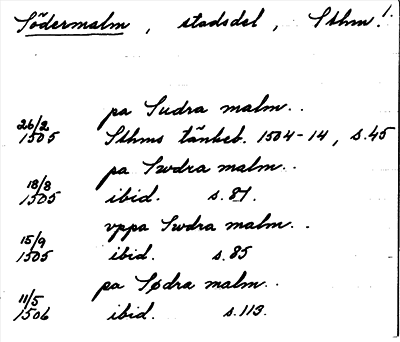 Södermalm, stadsdel, Sthm.
pa Sudra malm..
26/2 1505 Sthms tänkeb. 1504-14, s.45
pa Swdra malm..
18/8 1505 ibid. s.81.
vppa Swdra malm..
15/9 1505 ibid. s.85
pa Sødra malm..
11/5 1506 ibid. s.113.